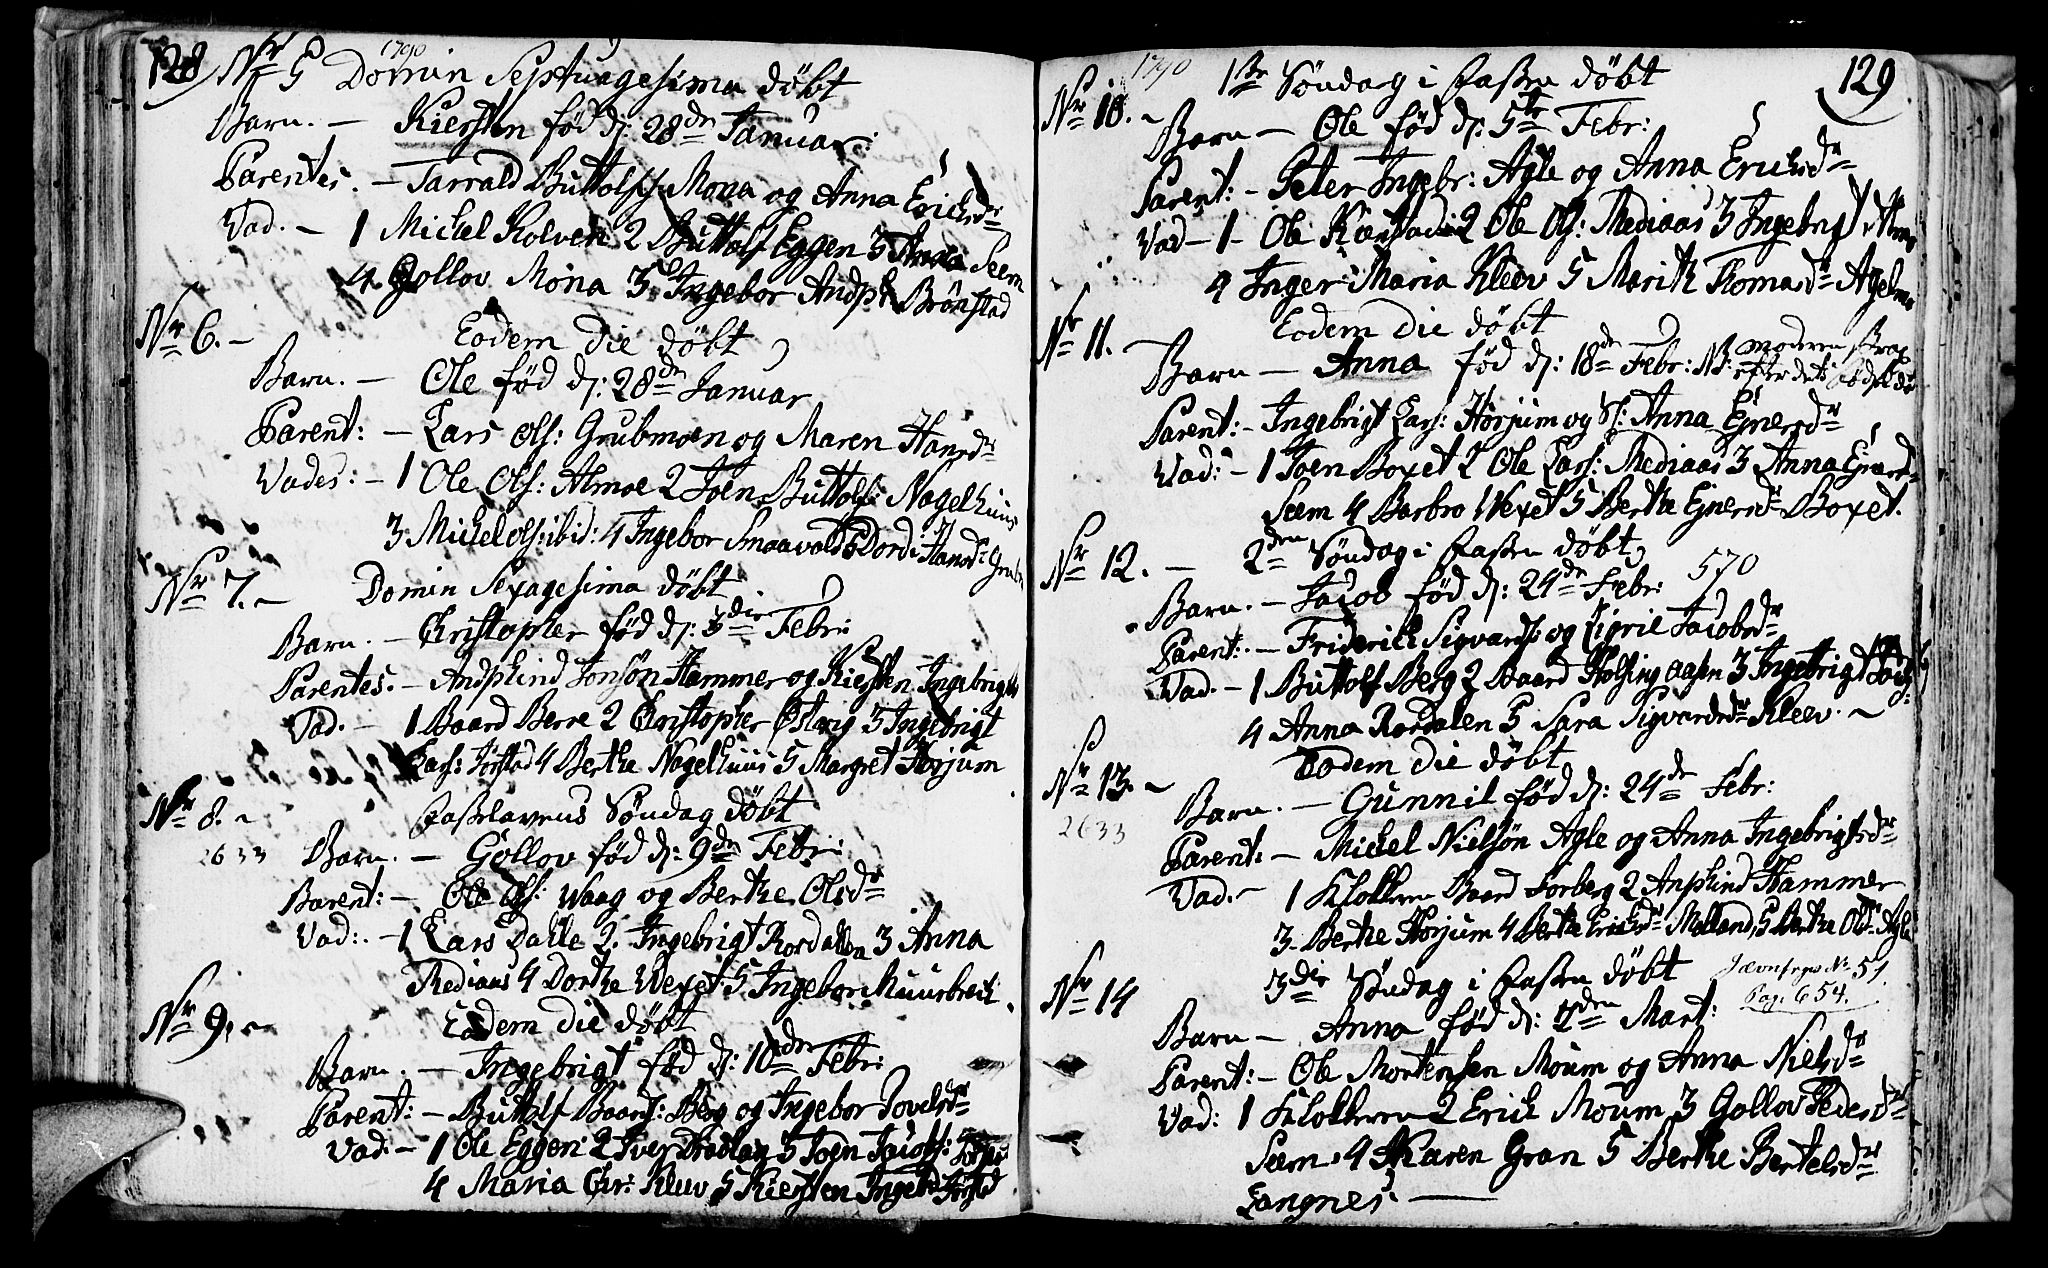 128 1790
Nr 5 Domin Septuagesima döbt
Barn. — Kiersten föd d: 28de Januar:
Parentes. — Tarrald Buttolfs: Mona og Anna Erichsdr
Vad. — 1 Michel Kolven 2 Buttolf Eggen 3 Anna Seem
4 Gollov Mona 5 Ingebor Andph: Brönstad
Nr 6. — Eodem die döbt
Barn. — Ole föd d: 28de Januar
Parent: — Lars Ols: Grubmoen og Maren Hansdr
Vades: — 1 Ole Ols: Almoe 2 Joen Buttolfs: Nagelhuus
3 Michel Ols: ibid: 4 Ingebor Snaavold 5 Dordi Hansdr Grubm
Nr 7. — Domin Sexagesima döbt
Barn. — Christopher föd d: 3die Febr:
Parentes. — Andphind Jonsön Hammer og Kiersten Ingebrigts
Vad. — 1 Baard Berre 2 Christopher Östvig 3 Ingebrigt
Lars: Jörstad 4 Berthe Nagelhuus 5 Margret Hörjum
Nr 8. — Fastelavens Söndag döbt
2633 Barn. — Gollov föd d: 9de Febr:
Parent: — Ole Ols: Waag og Berthe Olsdr
Vad:. — 1 Lars Dahle 2. Ingebrigt Rordalen 3 Anna
Mediaas 4 Dorthe Wexet 5 Ingebor Muusbreck
Nr 9. — Eodem die döbt
Barn. — Ingebrigt föd d: 10de Febr:
Parent: — Buttolf Baards: Berg og Ingebor Jovelsdr
Vad. — 1 Ole Eggen 2 Iver 3 Joen Jacobs:
4 Maria Chr: Kleev 5 Kiersten Jörstad
1790 129
Nr 10. — 1ste Söndag i Fasten döbt
Barn — Ole föd d: 5te Febr:
Parent: — Peter Ingebr: Agle og Anna Erichsdr
Vad — 1 — Ole Kiærstad 2 Ole Ols: Mediaas 3 Ingebrigt
4 Inger Maria Kleev 5 Marith Thomasdr Agelmo
Nr 11. — Eodem die döbt
Barn — Anna föd d: 18de Febr: NB: moderen strax
efter dets födsel död
Parent: — Ingebrigt Lars: Hörjum og S: Anna Ejnersdr
Vad: — 1 Joen Boxet 2 Ole Lars: Mediaas 3 Anna Ejnersdr
Seem 4 Barbro Wexet 5 Berthe Ejnersdr Boxet.
Nr 12. — 2den Söndag i Fasten döbt
570
Barn. — Jacob föd d: 24de Febr:
Parent: — Friderich Sigvards: og Sigrie Jacobsdr
Vad. — 1 Buttolf Berg 2 Baard Holsing aasen 3 Ingebrigt
4 Anna Rordalen 5 Sara Sigvardsdr Kleev. —
Nr 13. — Eodem die döbt
2633 Barn. — Gunnil föd d: 24de Febr:
Parent: — Michel Nielsön Agle og Anna Ingebrigtsdr
Vad. — 1 Klokken Baard Forberg 2 Anphind Hammer
3. Berthe Hörjum 4 Berthe Erichsdr Molland, 5 Berthe Olsdr Agle
Nr 14 3die Söndag i Fasten döbt Jævnfrgs No 51.
Pag. 654.
Barn — Anna föd d: 2den Mart:
Parent: — Ole Mortensen Moum og Anna Nielsdr
Vad: 1 Klokkeren 2 Erich Moum 3 Gollov Pedersdr
Seem 4 Karen Gran 5 Berthe Bertelsdr
Langnes. —